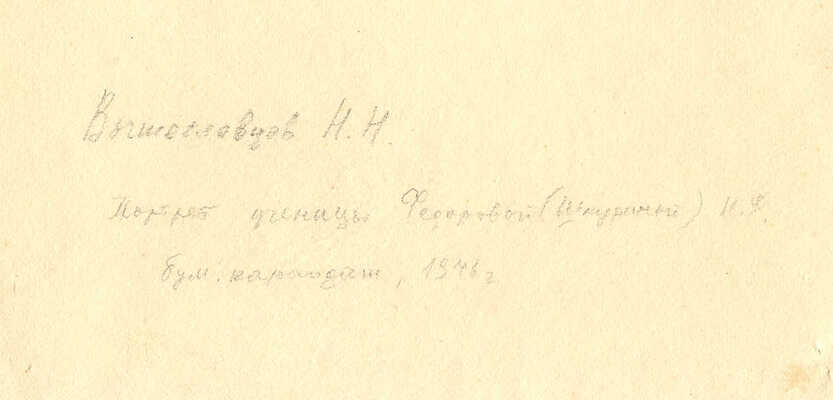 Вышеславцов Н. Н.
Портрет ученицы Федоровой (Шкуриной) Н.Ф.
бум. карандаш, 1946 г